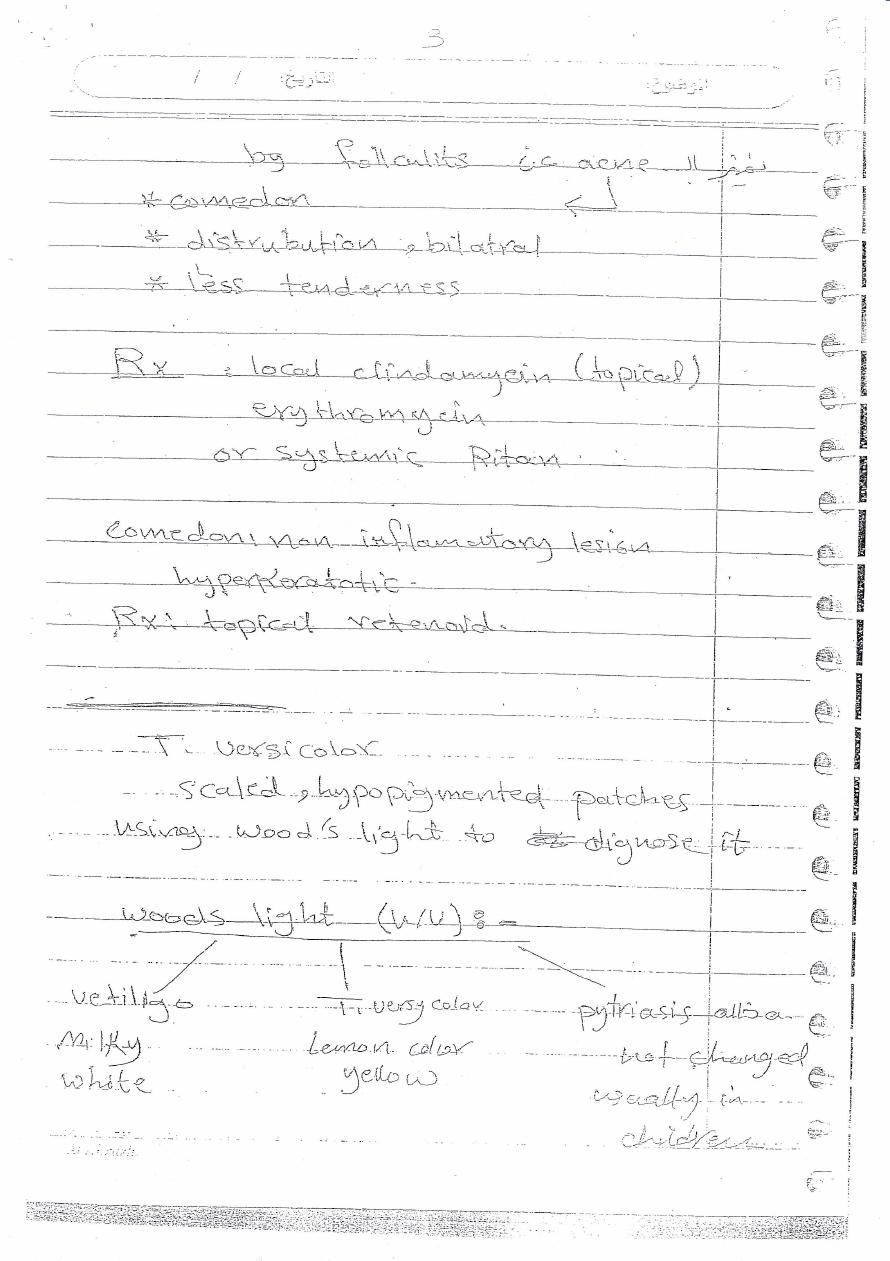 3
الموضوع: التاريخ: / /
نميز ال acne عن follculits by
* comedon
* distrubution, bilatral
* less tenderness
Rx : local clindamycin (topical)
erythromycin
or systemic Ritan
comedon: non inflamatory lesion
hyperkeratotic.
Rx: topical retenoid.
T. versicolor
scaled, hypopigmented patches
using wood's light to dignose it
woods light (U/V) :-
vetiligo T. versycolor pytriasis alba
Milky Lemon color not changed
white yellow usually in
children